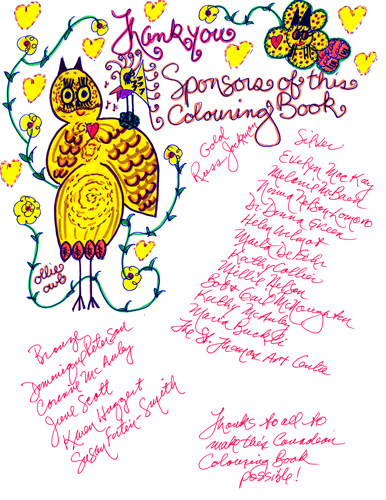 Thank you
Sponsors of this
Colouring Book
Gold
Russ Jackson
Silver
Evelyn MacKay
Melanie McBain
Norma Nelson
Dr. Donna Green
Helen
Marta DeBeke
Kathy Collier
Millie Nelson
Bob & Gail McNaughton
Kathy McAulay
Maria
The St. Thomas Art Centre
ollie
owl
Bronze
Dominique Peterson
Connie McAulay
June Scott
Karen Haggert
Susan Smith
Thanks to all to
make this Canadian
Colouring Book
possible!